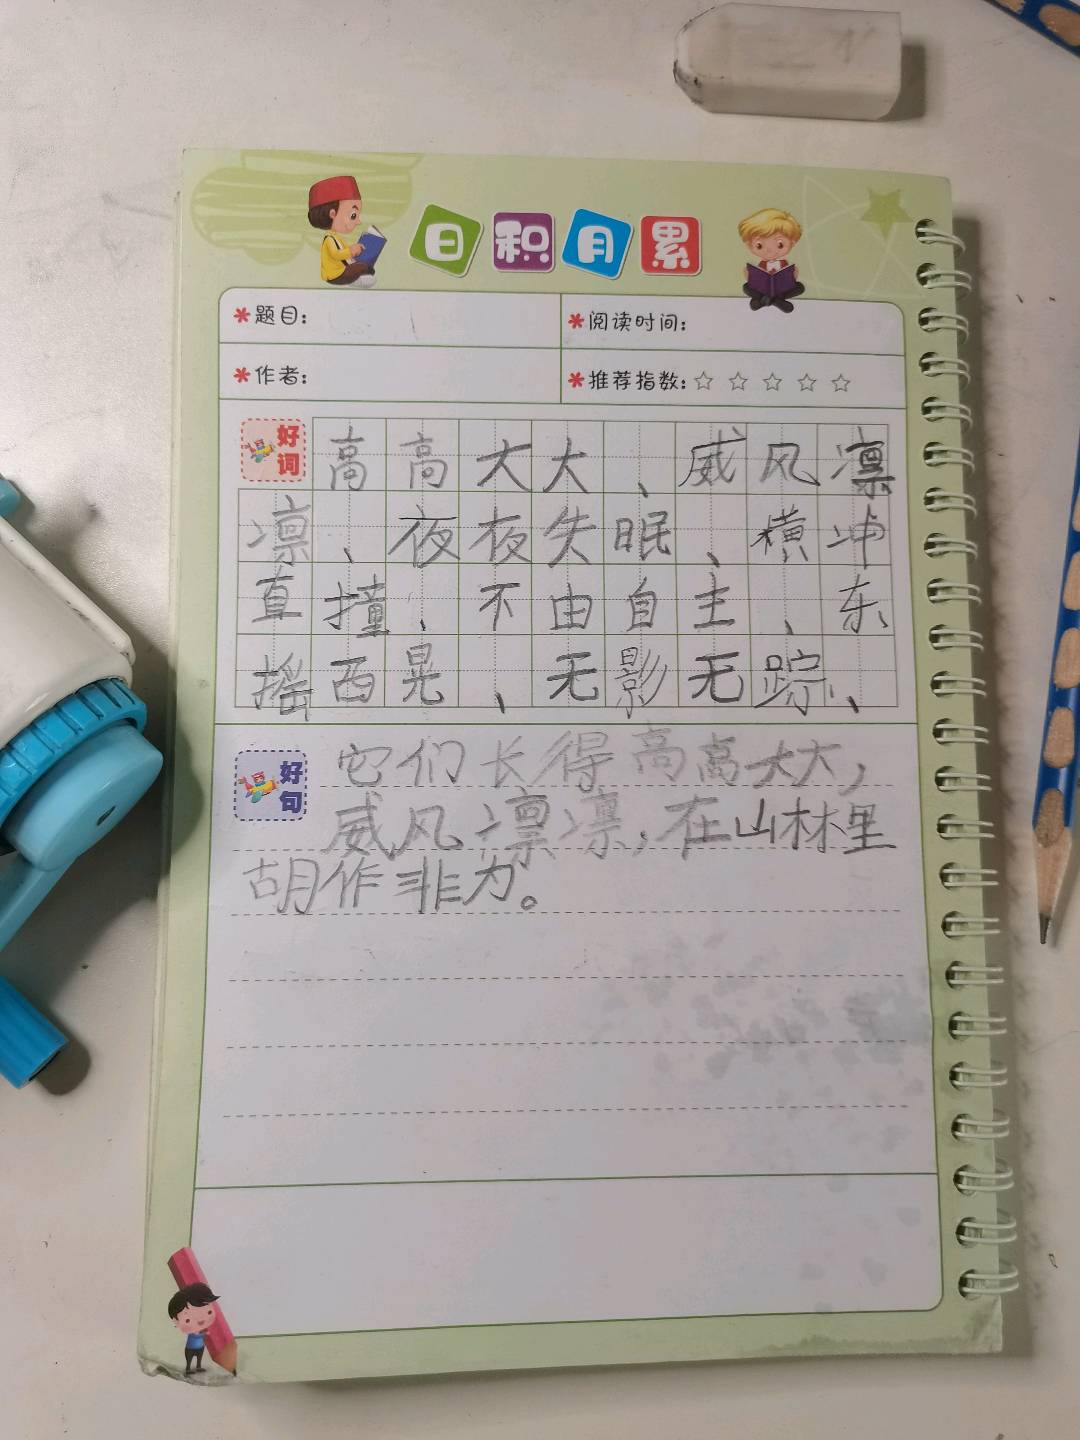 日积月累
*题目：
*阅读时间：
*作者：
*推荐指数：☆ ☆ ☆ ☆ ☆
好词
高高大大、威风凛
凛、夜夜失眠、横冲
直撞、不由自主、东
摇西晃、无影无踪、
好句
它们长得高高大大，
威风凛凛，在山林里
胡作非为。